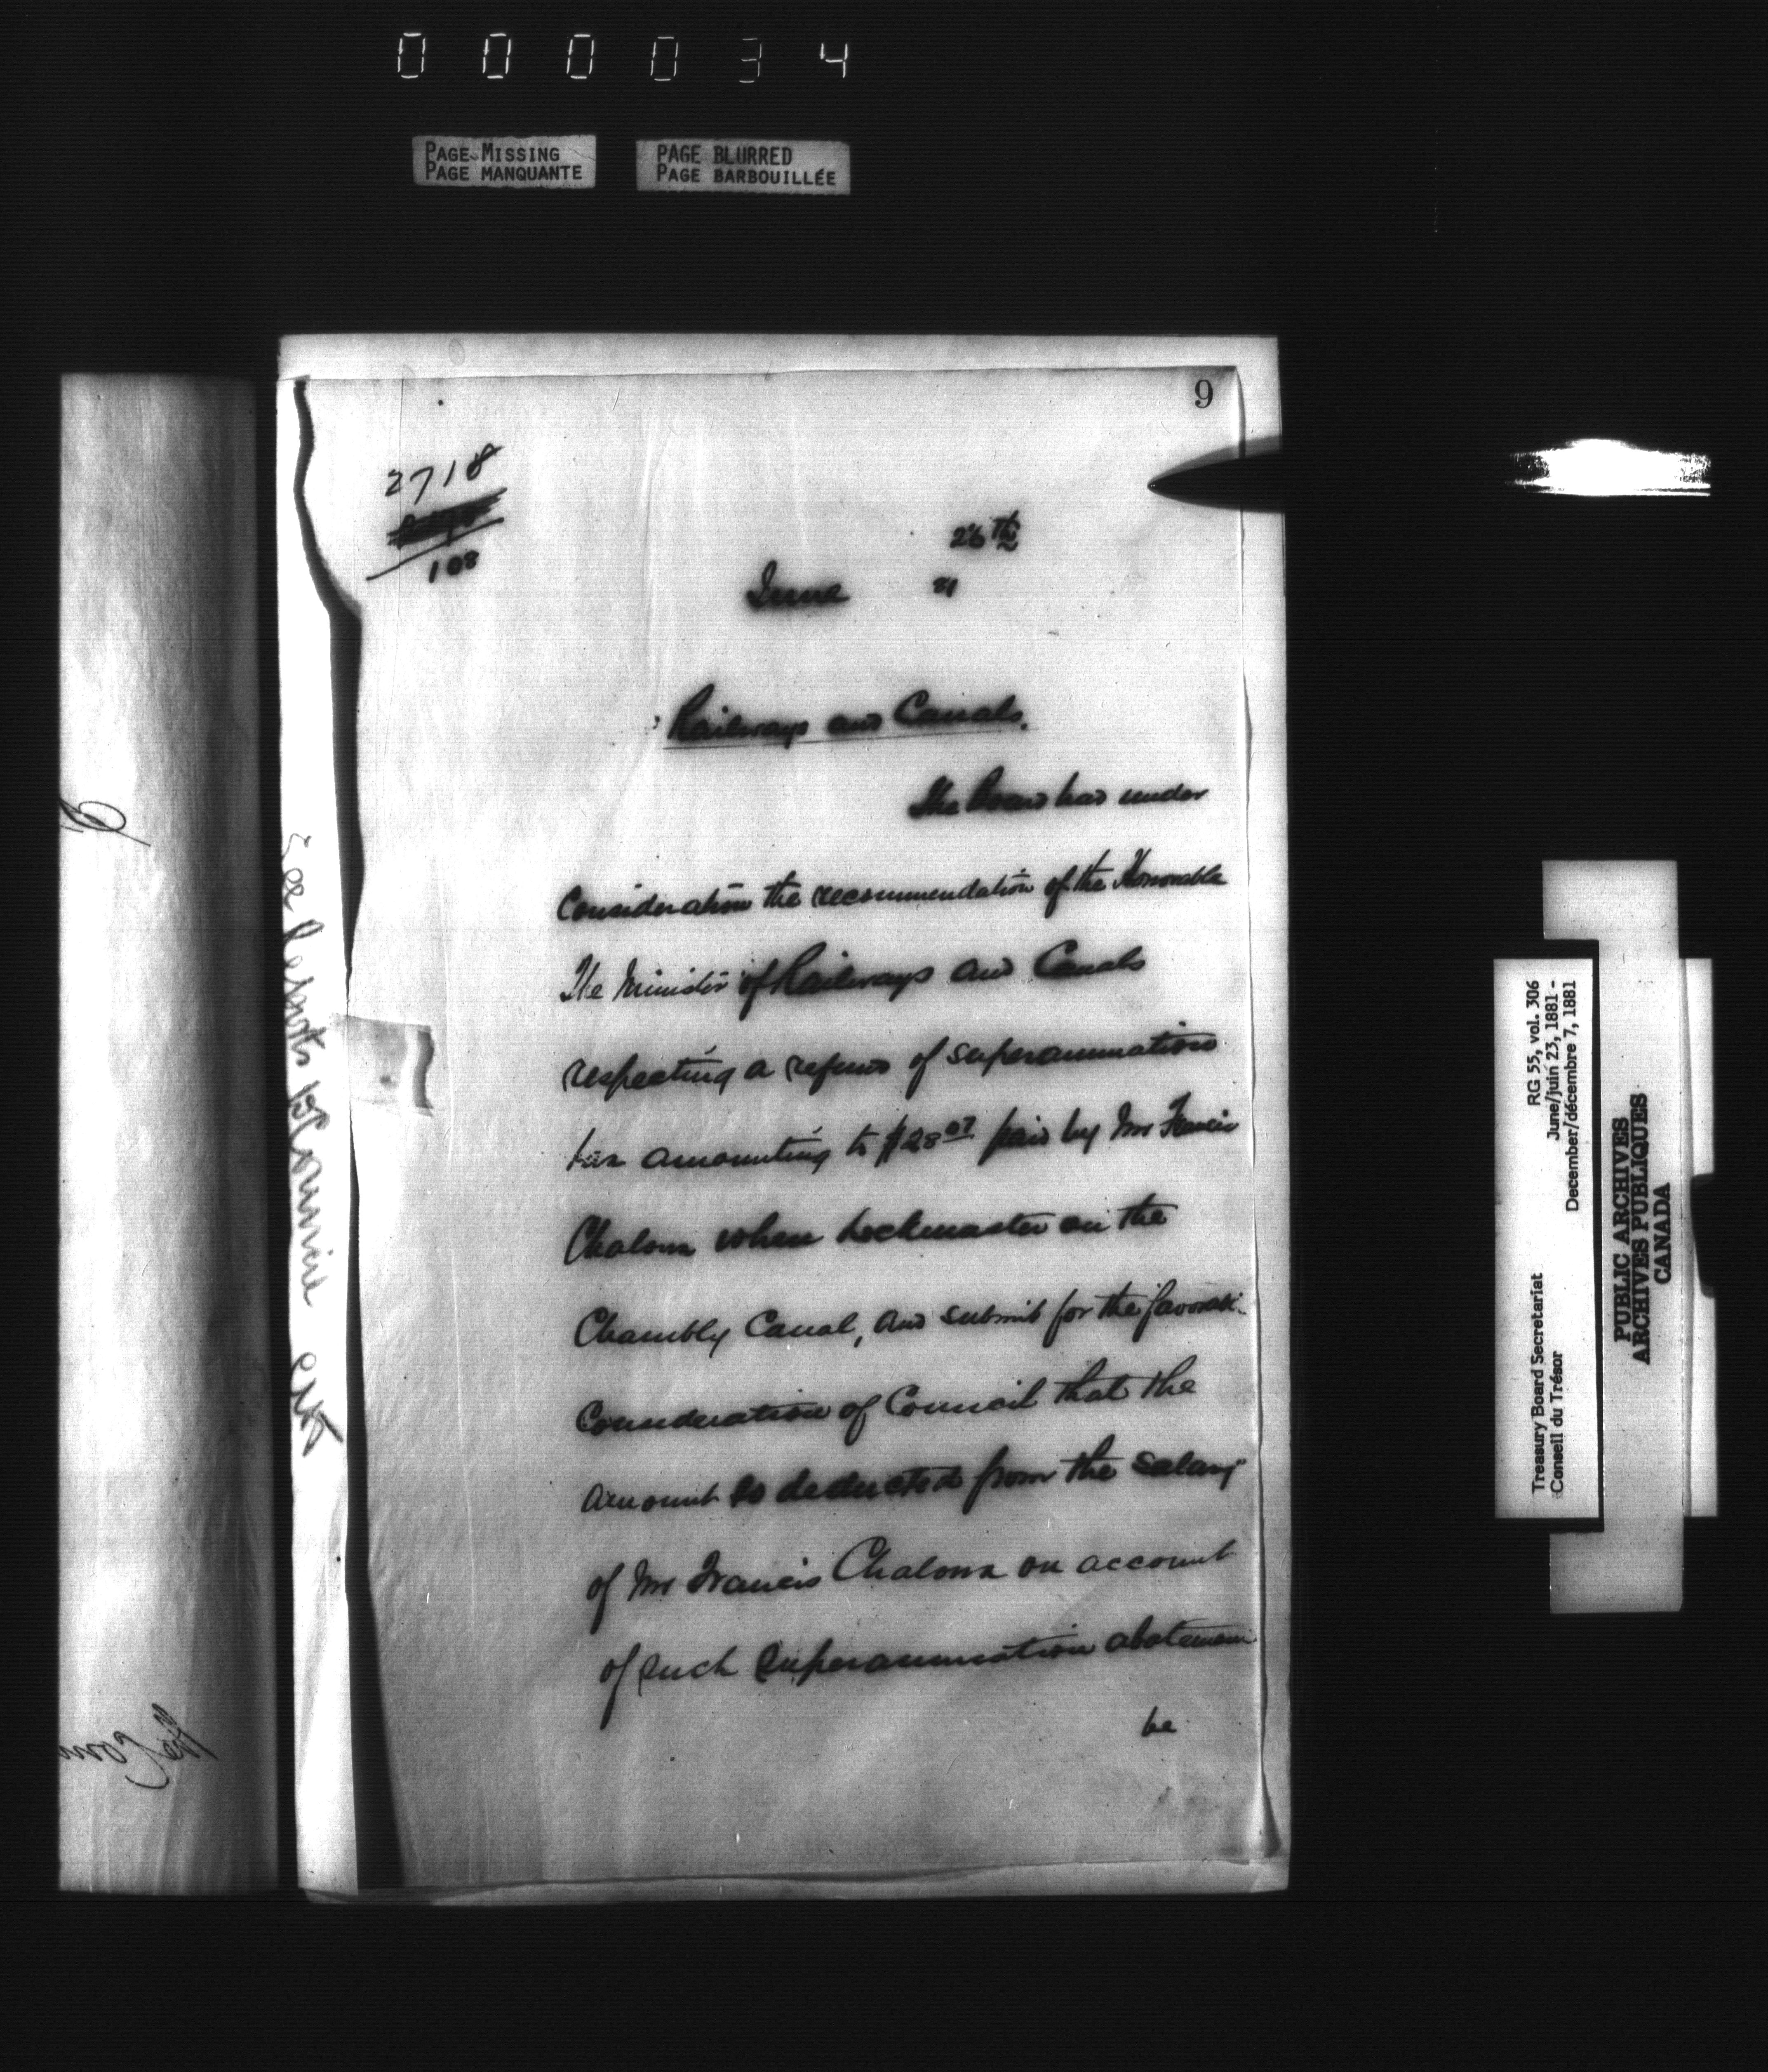 0 0 0 0 3 4
PAGE MISSING
PAGE MANQUANTE
PAGE BLURRED
PAGE BARBOUILLÉE
9
2718
108
26th
June 81
Railways and Canals.
The Board has under
Consideration the recommendation of the Honorable
The Minister of Railways and Canals
respecting a refund of superannuation
tax amounting to $28 07 paid by Mr Francis
Chalom when Lockmaster on the
Chambly Canal, and submit for the favorabl
Consideration of Council that the
amount so deducted from the salary
of Mr Francis Chalom on account
of such superannuation abatement
be
RG 55, vol. 306
June/juin 23, 1881 -
December/décembre 7, 1881
Treasury Board Secretariat
Conseil du Trésor
PUBLIC ARCHIVES
ARCHIVES PUBLIQUES
CANADA